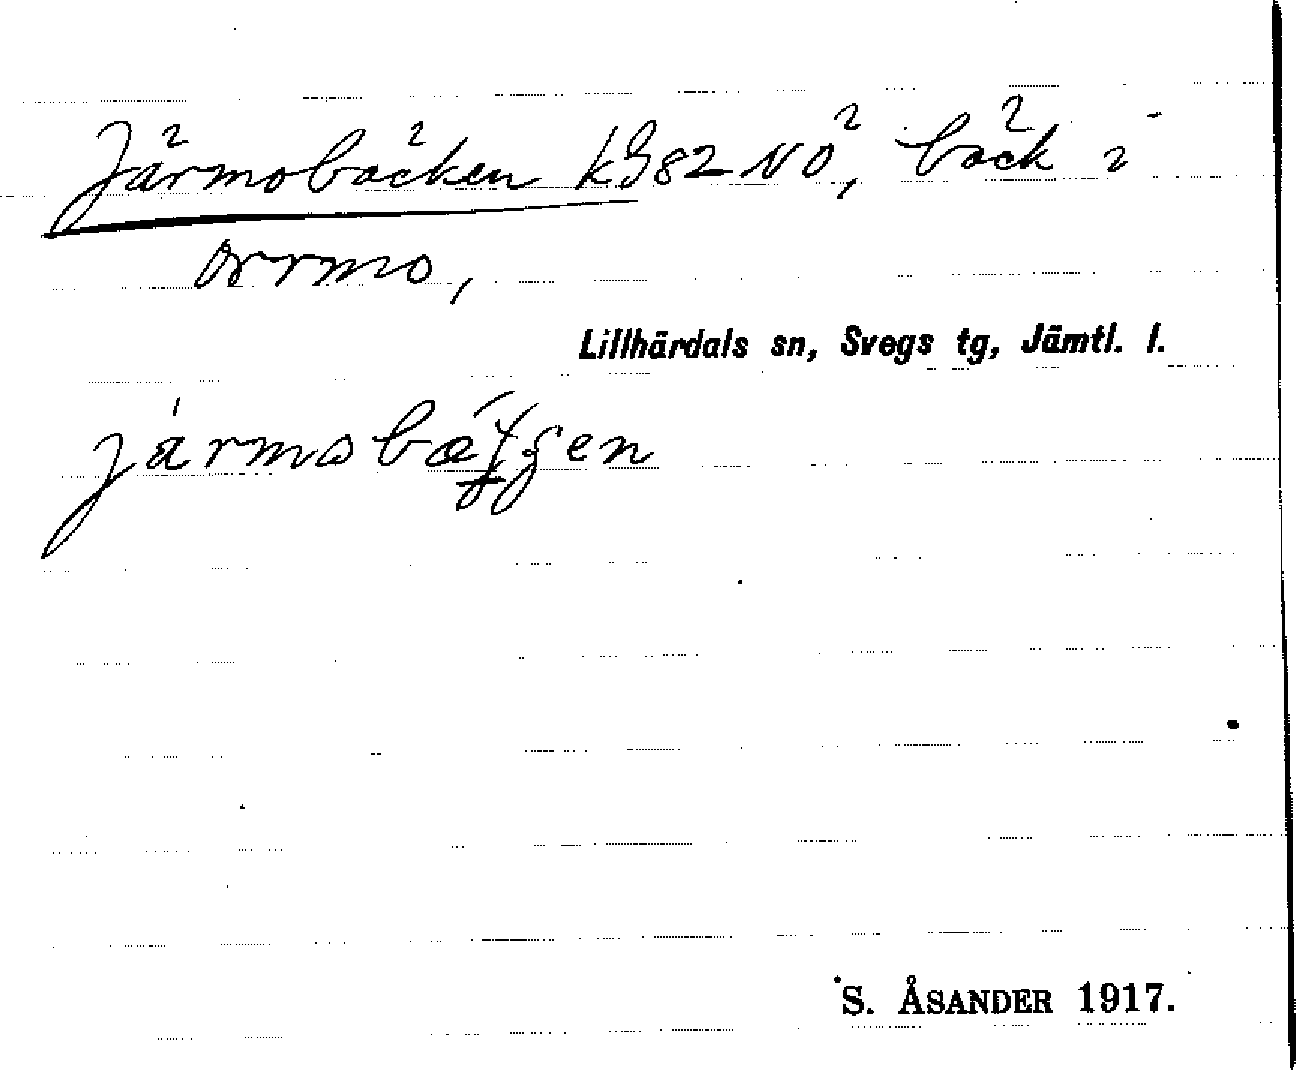 Järmobäcken kG82 NÖ, bäck i
Orrmo,
Lillhärdals sn, Svegs tg, Jämtl. l.
S. ÅSANDER 1917.